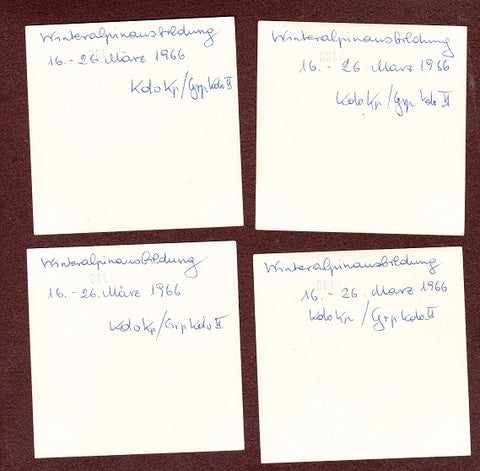 Winteralpinausbildung
16. - 26. März 1966
KdoKp/GrpKdo II
Winteralpinausbildung
16. - 26. März 1966
KdoKp/Grp Kdo II
Winteralpinausbildung
16. - 26. März 1966
KdoKp/Grp Kdo II
Winteralpinausbildung
16. - 26. März 1966
KdoKp/Grp Kdo II